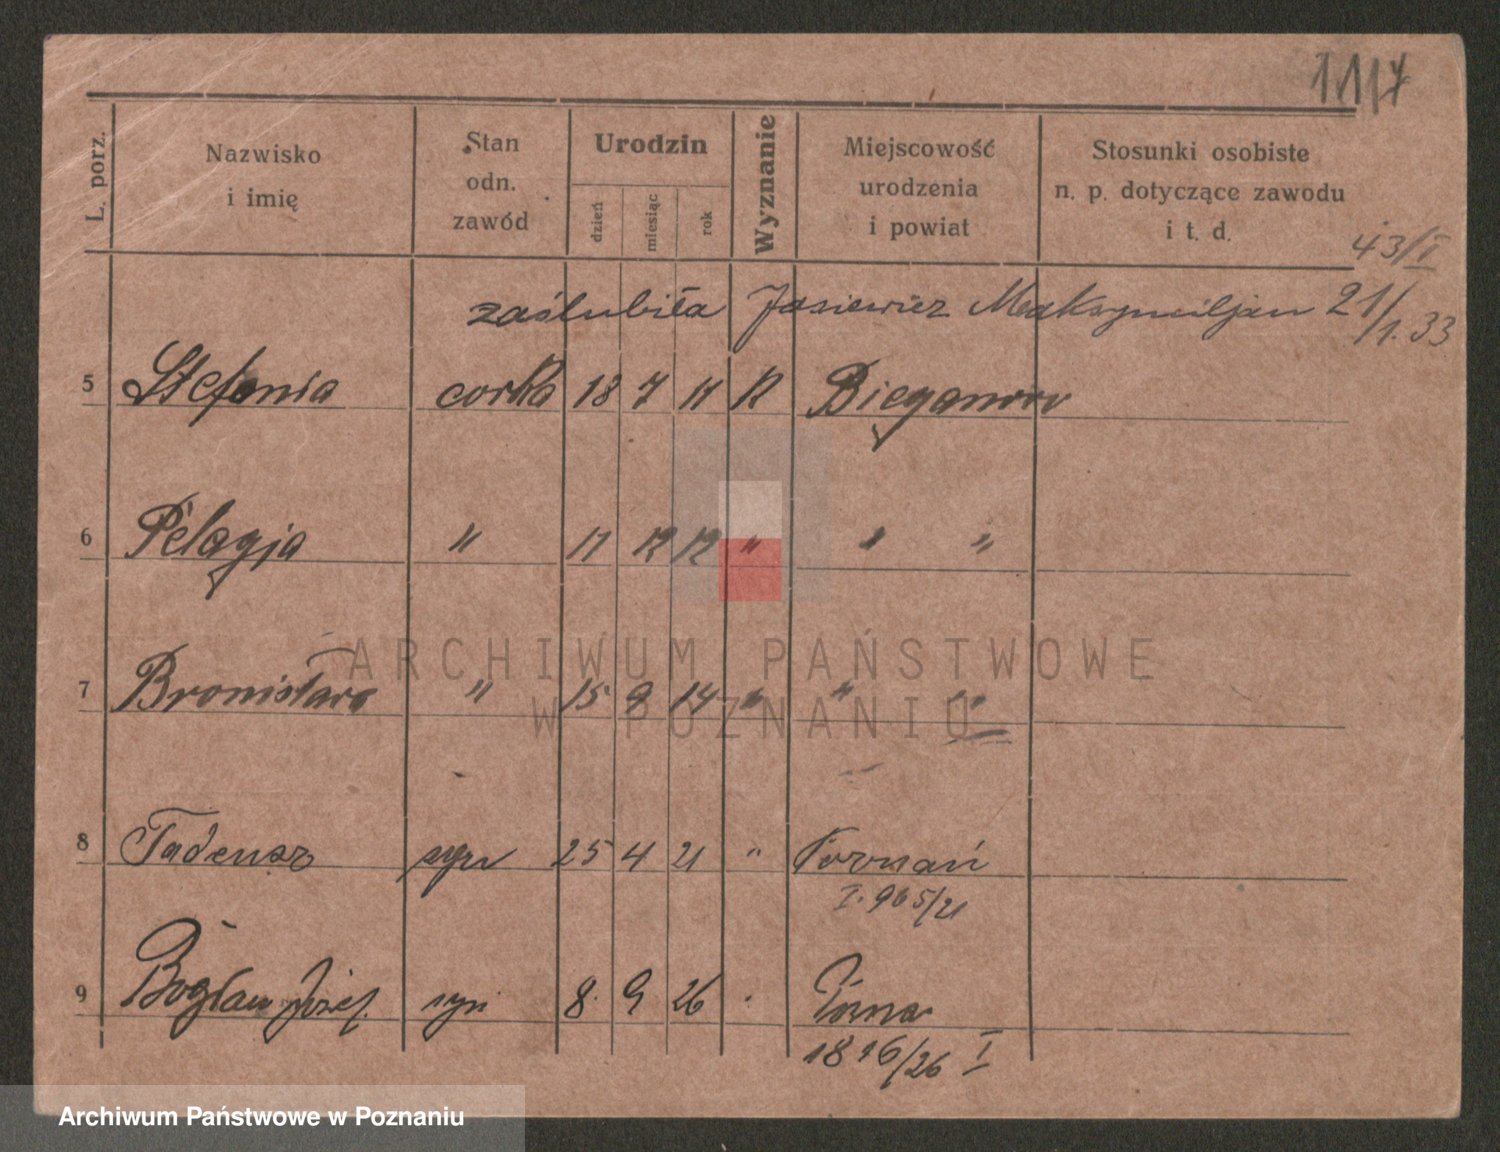 1117
L. porz.
Nazwisko
i imię
Stan
odn.
zawód
Urodzin
dzień
miesiąc
rok
Wyznanie
Miejscowość
urodzenia
i powiat
Stosunki osobiste
n. p. dotyczące zawodu
i t. d.
43/I
zaślubiła Jasiewicz Maksymiljan 21/1.33
5 Stefania corka 18 7 11 R Bieganowo
6 Pelagja " 17 12 12 " " "
7 Bronisława " 15 9 14 " " "
8 Tadeusz syn 25 4 21 " Poznań
I. 965/21
9 Bogdan Józef. syn 8. 9 26
1816/26 I
ARCHIWUM PAŃSTWOWE
W POZNANIU
Archiwum Państwowe w Poznaniu